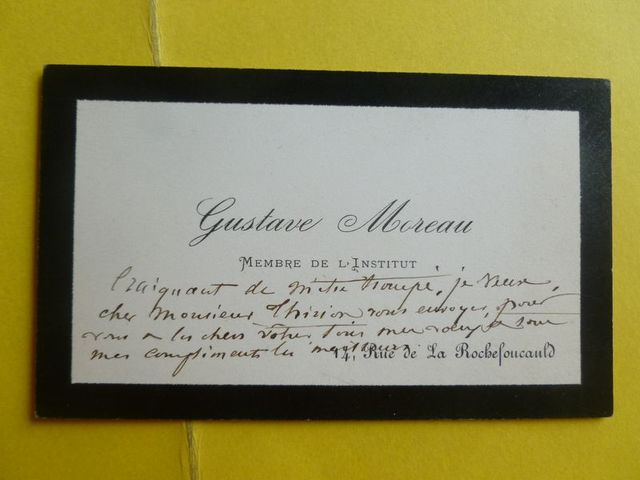 Gustave Moreau
MEMBRE DE L'INSTITUT
Craignant de m'être trompé, je veux,
cher Monsieur Thirion vous envoyer, pour
vous &
mes compliments les meilleurs.
14, Rue de La Rochefoucauld